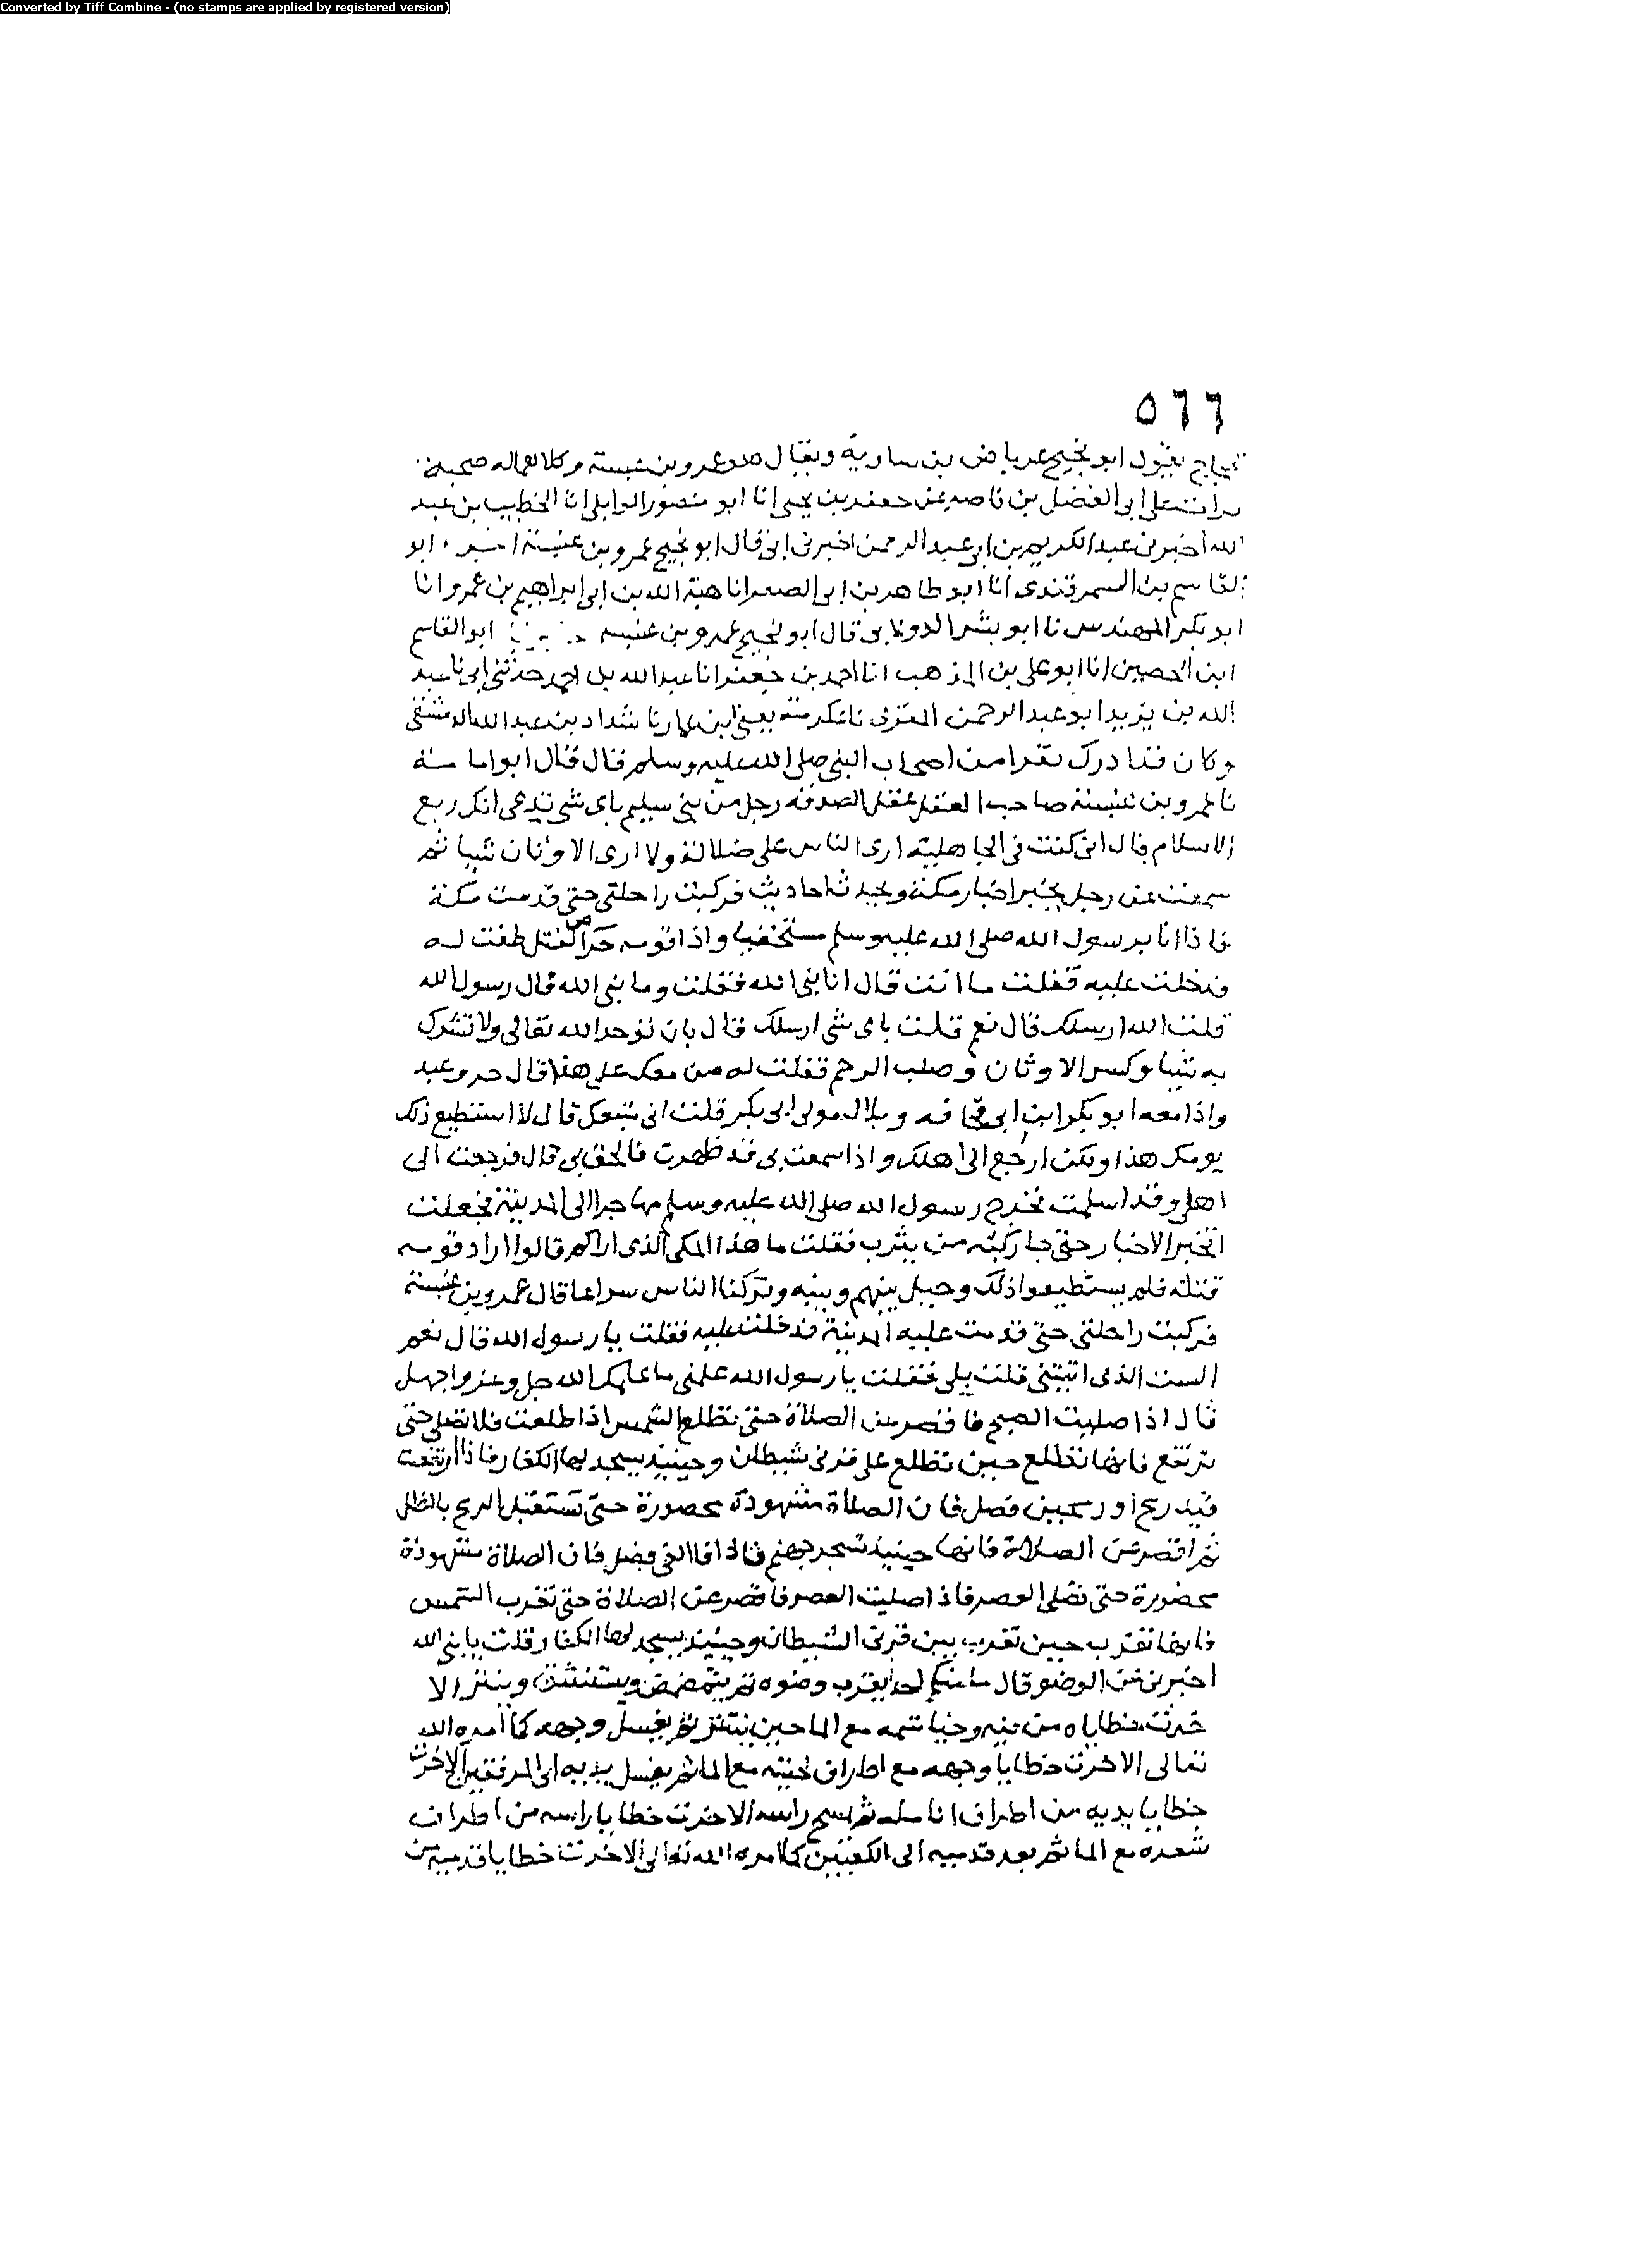 Converted by Tiff Combine - (no stamps are applied by registered version)
٥٦٦
يقول ابو نجيح عرباض بن سارية ويقال عمرو بن عبسة وكلاهما له صحبة
على ابى الفضل بن ناصر عن جعفر بن يحيى انا ابو منصور الوايلى انا الخطيب بن عبد
الله اخبرنى عبد الكريم بن ابى عبد الرحمن اخبرنى ابى قال ابو نجيح عمرو بن عنبسة ابو
القاسم بن السمرقندى انا ابو طاهر بن ابى الصقر انا هبة الله بن ابى ابراهيم بن عمرو انا
ابو بكر المهندس نا ابو بشر الدولابى قال ابو نجيح عمرو بن عنبسه ابو القاسم
ابن الحصين انا ابو على بن المذهب انا احمد بن جعفر انا عبد الله بن احمد حدثنى ابى نا عبد
الله بن يزيد ابو عبد الرحمن المقرى نا عكرمة يعنى ابن عمار نا شداد بن عبد الله الدمشقى
وكان قد ادرك نفرا من اصحاب النبى صلى الله عليه وسلم قال قال ابو امامة
نا عمرو بن عنبسة صاحب العقل عقل الصدقه رجل من بنى سليم باى شى تدعى انك ربع
الاسلام قال انى كنت فى الجاهلية ارى الناس على ضلالة ولا ارى الاوثان شيا ثم
سمعت عن رجل يخبر اخبار مكة ويحدث احاديث فركبت راحلتى حتى قدمت مكة
فاذا انا برسول الله صلى الله عليه وسلم مستخفيا واذا قومه له
فدخلت عليه فقلت ما انت قال انا نبى الله فقلت وما نبى الله قال رسول الله
قلت الله ارسلك قال نعم قلت باى شى ارسلك قال بان توحد الله تعالى ولا تشرك
به شيا وكسر الاوثان وصلب الرحم فقلت له من معك على هذا قال حر وعبد
واذا معه ابو بكر ابن ابى قحافه وبلال مولى ابى بكر قلت انى متبعك قال لا استطيع ذلك
يومك هذا ولكن ارجع الى اهلك واذا سمعت بى قد ظهرت فالحق بى قال فرجعت الى
اهلى وقد اسلمت فخرج رسول الله صلى الله عليه وسلم مهاجرا الى المدينة فجعلت
اتخبر الاخبار حتى جا ركبه من يثرب فقلت ما هذا المكى الذى اتاكم قالوا اراد قومه
قتله فلم يستطيعوا ذلك وحيل بينهم وبينه وتركنا الناس سراعا قال عمرو بن عنبسة
فركبت راحلتى حتى قدمت عليه المدينة فدخلت عليه فقلت يا رسول الله قال نعم
الست الذى اتيتنى قلت بلى فقلت يا رسول الله علمنى ما علمك الله جل وعز واجهل
قال اذا صليت الصبح فاقصر عن الصلاة حتى تطلع الشمس اذا طلعت فلا تصلى حتى
ترتفع فانها تطلع حين تطلع على قرنى شيطان وحينيذ يسجد لها الكفار فاذا ارتفعت
قيد رمح او رمحين فصل فان الصلاة مشهودة محضورة حتى تستقبل الرمح بالظل
ثم اقصر عن الصلاة فانها حينيذ تسجر جهنم فاذا فا الفى فصل فان الصلاة مشهودة
محضورة حتى تصلى العصر فاذا صليت العصر فاقصر عن الصلاة حتى تغرب الشمس
فانها تغرب حين تغرب بين قرنى الشيطان وحينيذ يسجد لها الكفار قلت يا نبى الله
اخبرنى عن الوضو قال ما منكم احد يقرب وضوه ثم يتمضمض ويستنشق وينتثر الا
خرت خطاياه من فيه وخياشمه مع الما حين ينتثر ثم يغسل وجهه كما امره الله
تعالى الا خرت خطايا وجهه مع اطراف لحيته مع الما ثم يغسل يديه الى المرفقين الا خرت
خطايا يديه من اطراف انامله ثم يمسح راسه الا خرت خطايا راسه من اطراف
شعره مع الما ثم بعد قدميه الى الكعبين كما امره الله تعالى الا خرت خطايا قدميه من